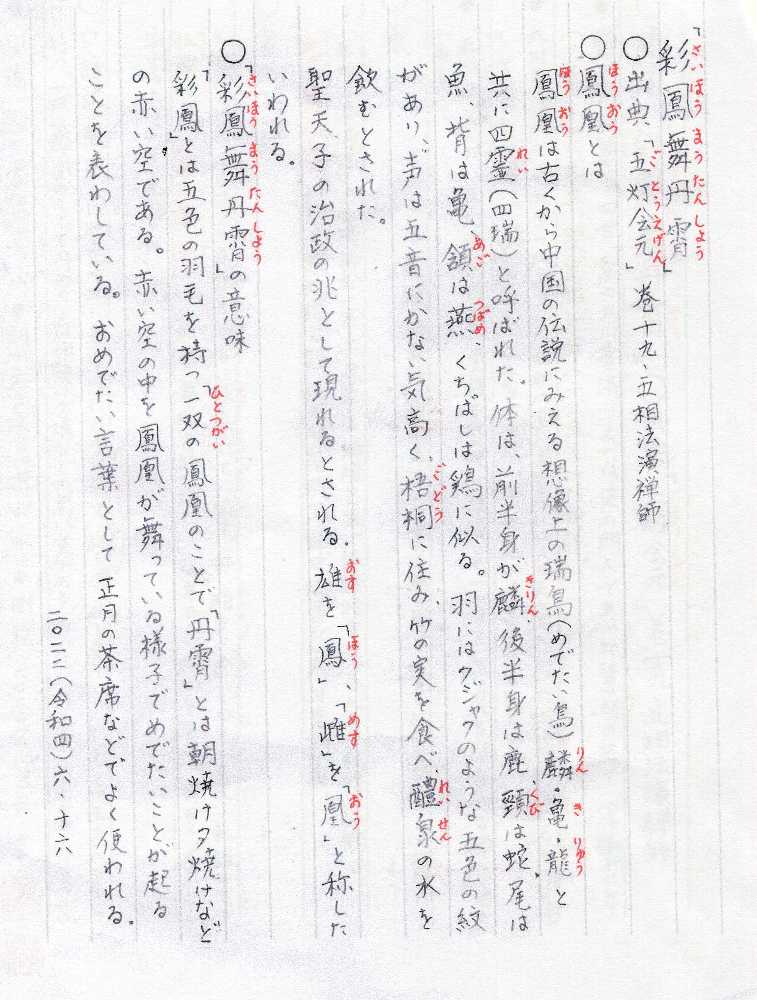 「彩鳳舞丹霄」
さいほうまうたんしょう
○出典、「五灯会元」巻十九・五相法演禅師
ごとうえげん
○鳳凰とは
ほうおう
鳳凰は古くから中国の伝説にみえる想像上の瑞鳥(めでたい鳥)麟・亀・龍と
ほうおう りん き りゅう
共に四霊(四瑞)と呼ばれた。体は、前半身が麟、後半身は鹿、頸は蛇、尾は
れい きりん くび
魚、背は亀、頷は燕、くちばしは鶏に似る。羽にはクジャクのような五色の紋
あご つばめ
があり、声は五音にかない気高く、梧桐に住み、竹の実を食べ、醴泉の水を
ごどう れいせん
飲むとされた。
聖天子の治政の兆として現れるとされる。雄を「鳳」、「雌」を「凰」と称した
おす ほう めす おう
いわれる。
○「彩鳳舞丹霄」の意味
さいほうまうたんしょう
「彩鳳」とは五色の羽毛を持つ「一双の鳳凰のことで「丹霄」とは朝焼け夕焼けなど
ひとつがい
の赤い空である。赤い空の中を鳳凰が舞っている様子でめでたいことが起る
ことを表わしている。おめでたい言葉として正月の茶席などでよく使われる。
二〇二二(令和四)六・十六